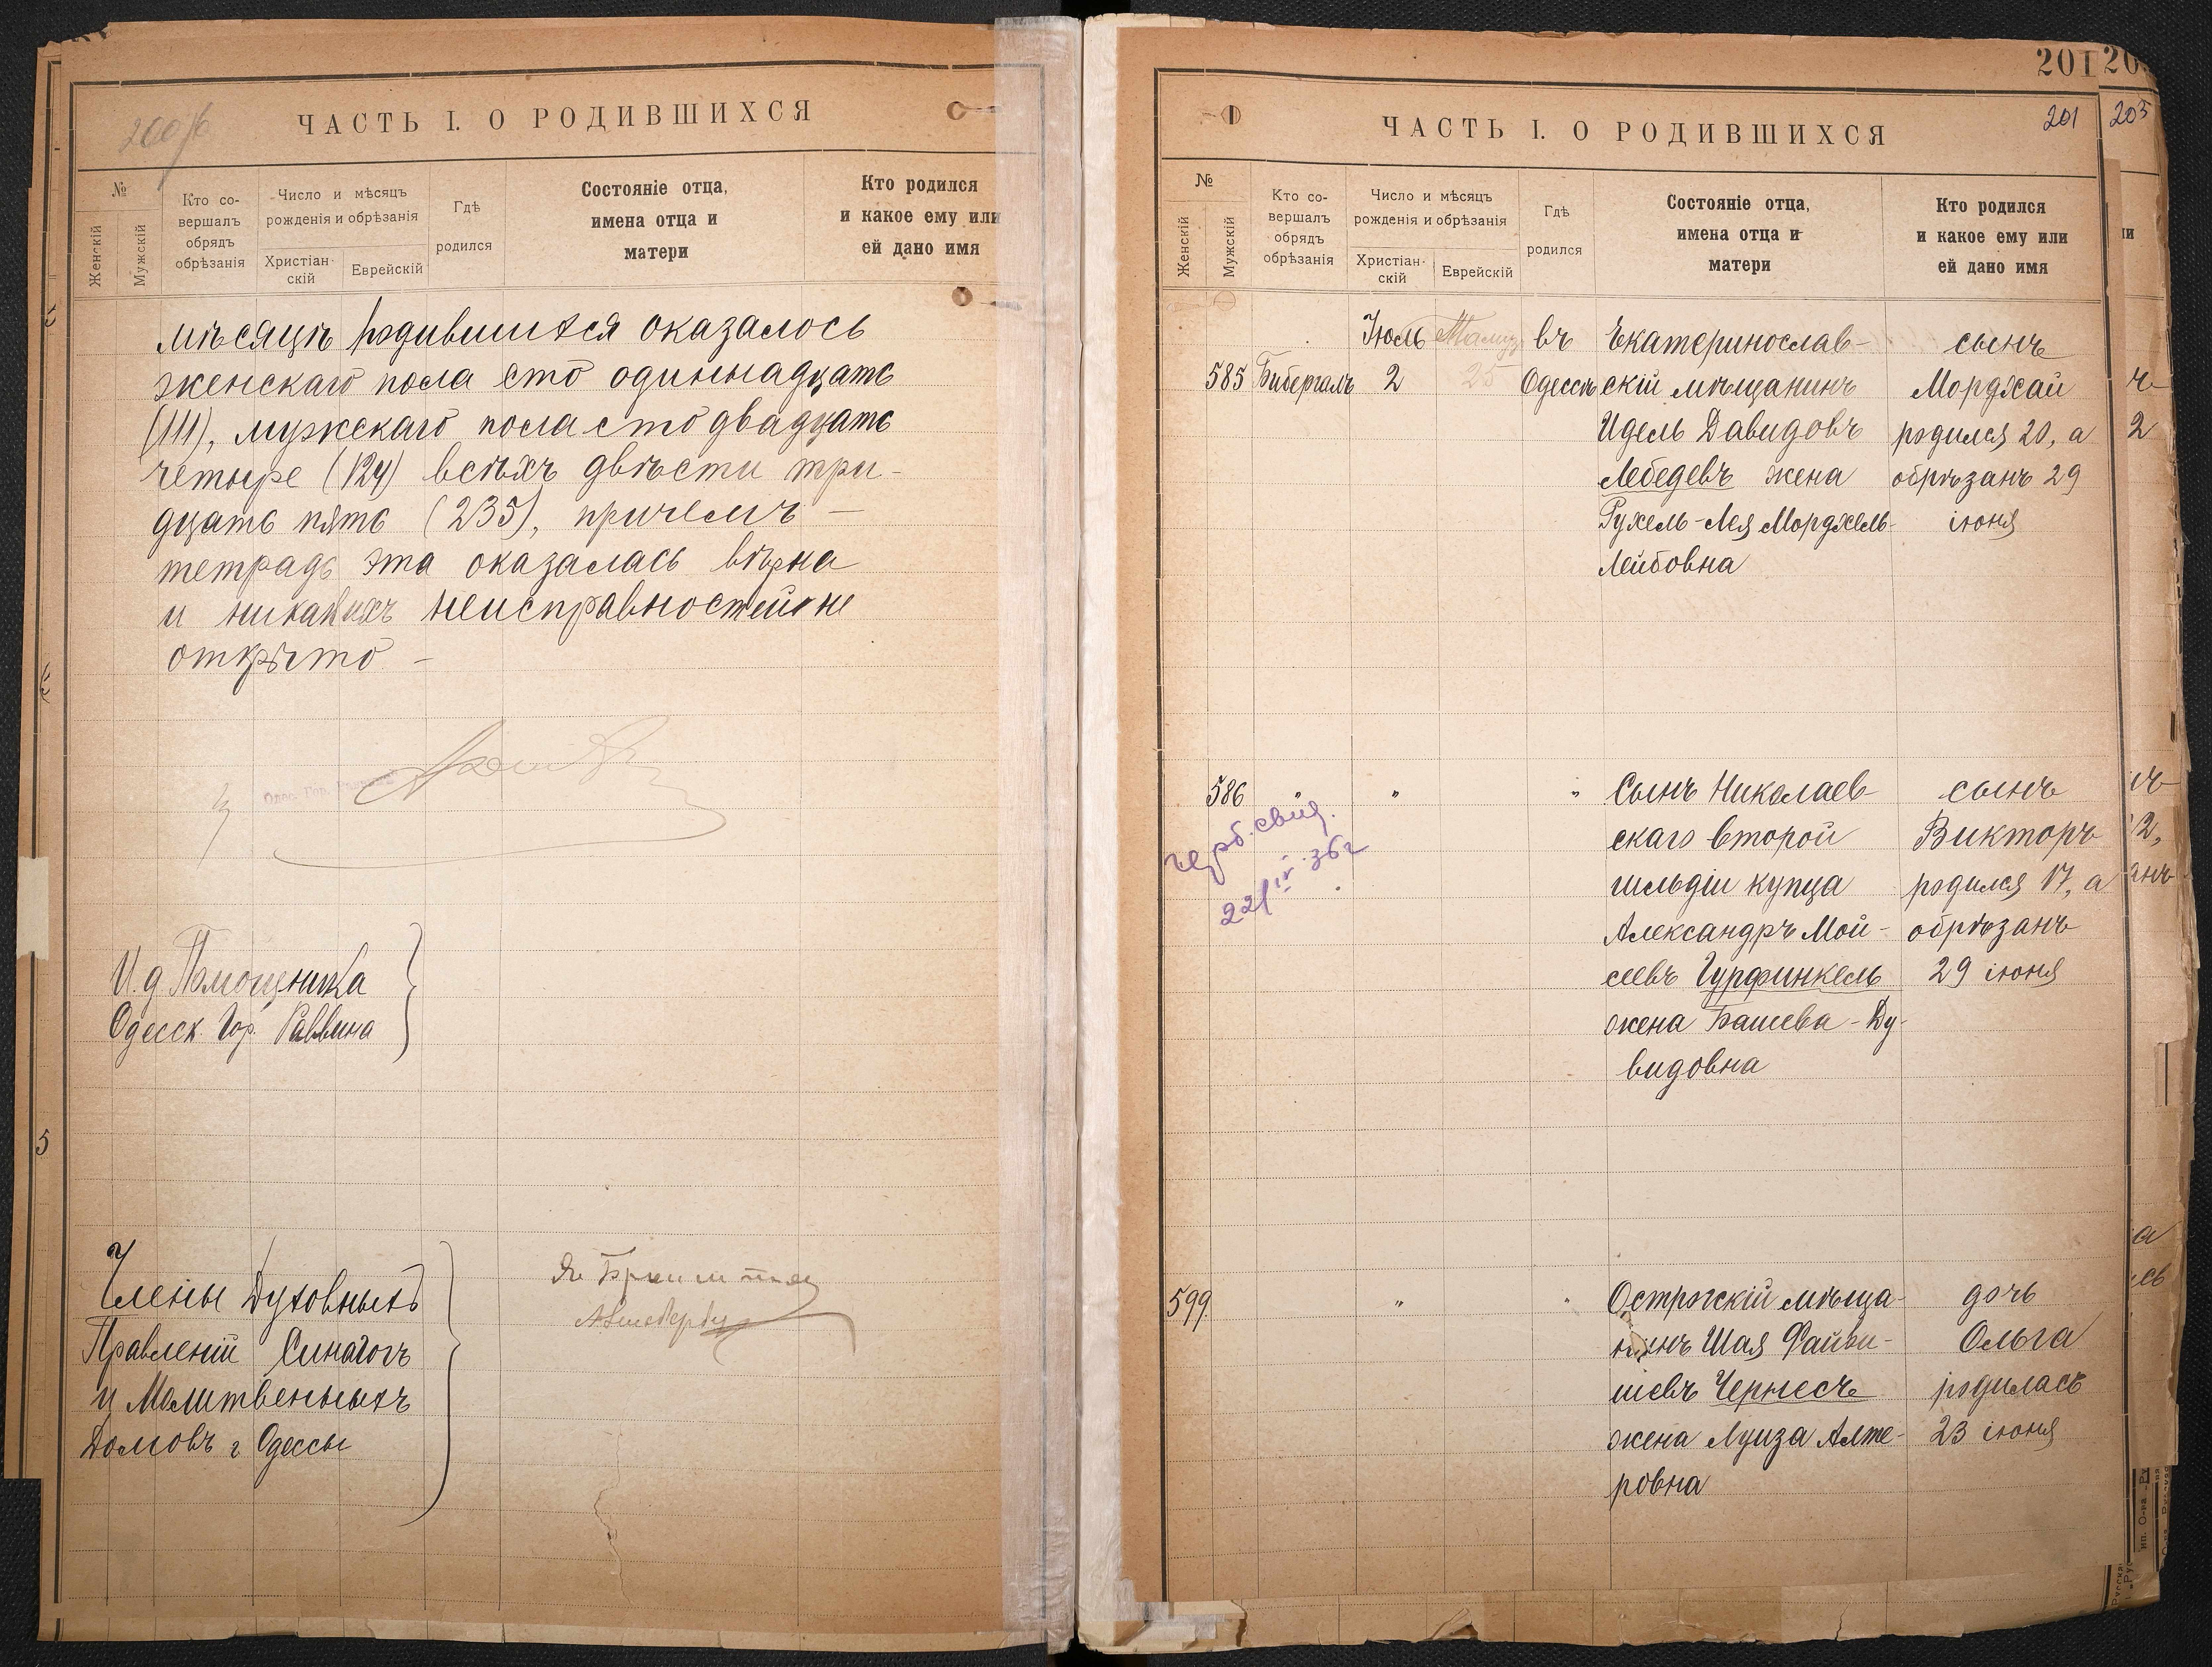 200
ЧАСТЬ I. О РОДИВШИХСЯ
№
Женскій
Мужскій
Кто со-
вершалъ
обрядъ
обрѣзанія
Число и мѣсяцъ
рожденія и обрѣзанія
Христіан-
скій
Еврейскій
Гдѣ
родился
Состояніе отца,
имена отца и
матери
Кто родился
и какое ему или
ей дано имя
мѣсяцѣ родившихся оказалось
женскаго пола сто одиннадцать
(111), мужскаго пола сто двадцать
четыре (124) всѣхъ двѣсти три-
дцать пять (235), причемъ —
тетрадь эта оказалась вѣрна
и никакихъ неисправностей не
открыто —
И. д Помощника
Одесск. Гор. Раввина
Члены Духовныхъ
Правленій Синагогъ
и Молитвенныхъ
Домовъ г Одессы
5
201
201
ЧАСТЬ I. О РОДИВШИХСЯ
№
Женскій
Мужскій
Кто со-
вершалъ
обрядъ
обрѣзанія
Число и мѣсяцъ
рожденія и обрѣзанія
Христіан-
скій
Еврейскій
Гдѣ
родился
Состояніе отца,
имена отца и
матери
Кто родился
и какое ему или
ей дано имя
Іюль Тамуз въ Екатеринослав- сынъ
585 Бибергалъ 2 25 Одессѣ скій мѣщанинъ Мордхай
Идель Давидовъ родился 20, а
Лебедевъ жена обрѣзанъ 29
Рухель-Лея Мордхель- іюня
Лейбовна
586 " " " Сынъ Николаев- сынъ
скаго второй Викторъ
гильдіи купца родился 17, а
Александръ Мой- обрѣзанъ
сеевъ Гурфинкель 29 іюня
жена Башева-Ду-
видовна
герб. свид.
22/IV 36г
599. " " Острогскій мѣща- дочь
нинъ Шая Файви- Ольга
шевъ Чернесъ родилась
жена Луиза Алте- 23 іюня
ровна
203